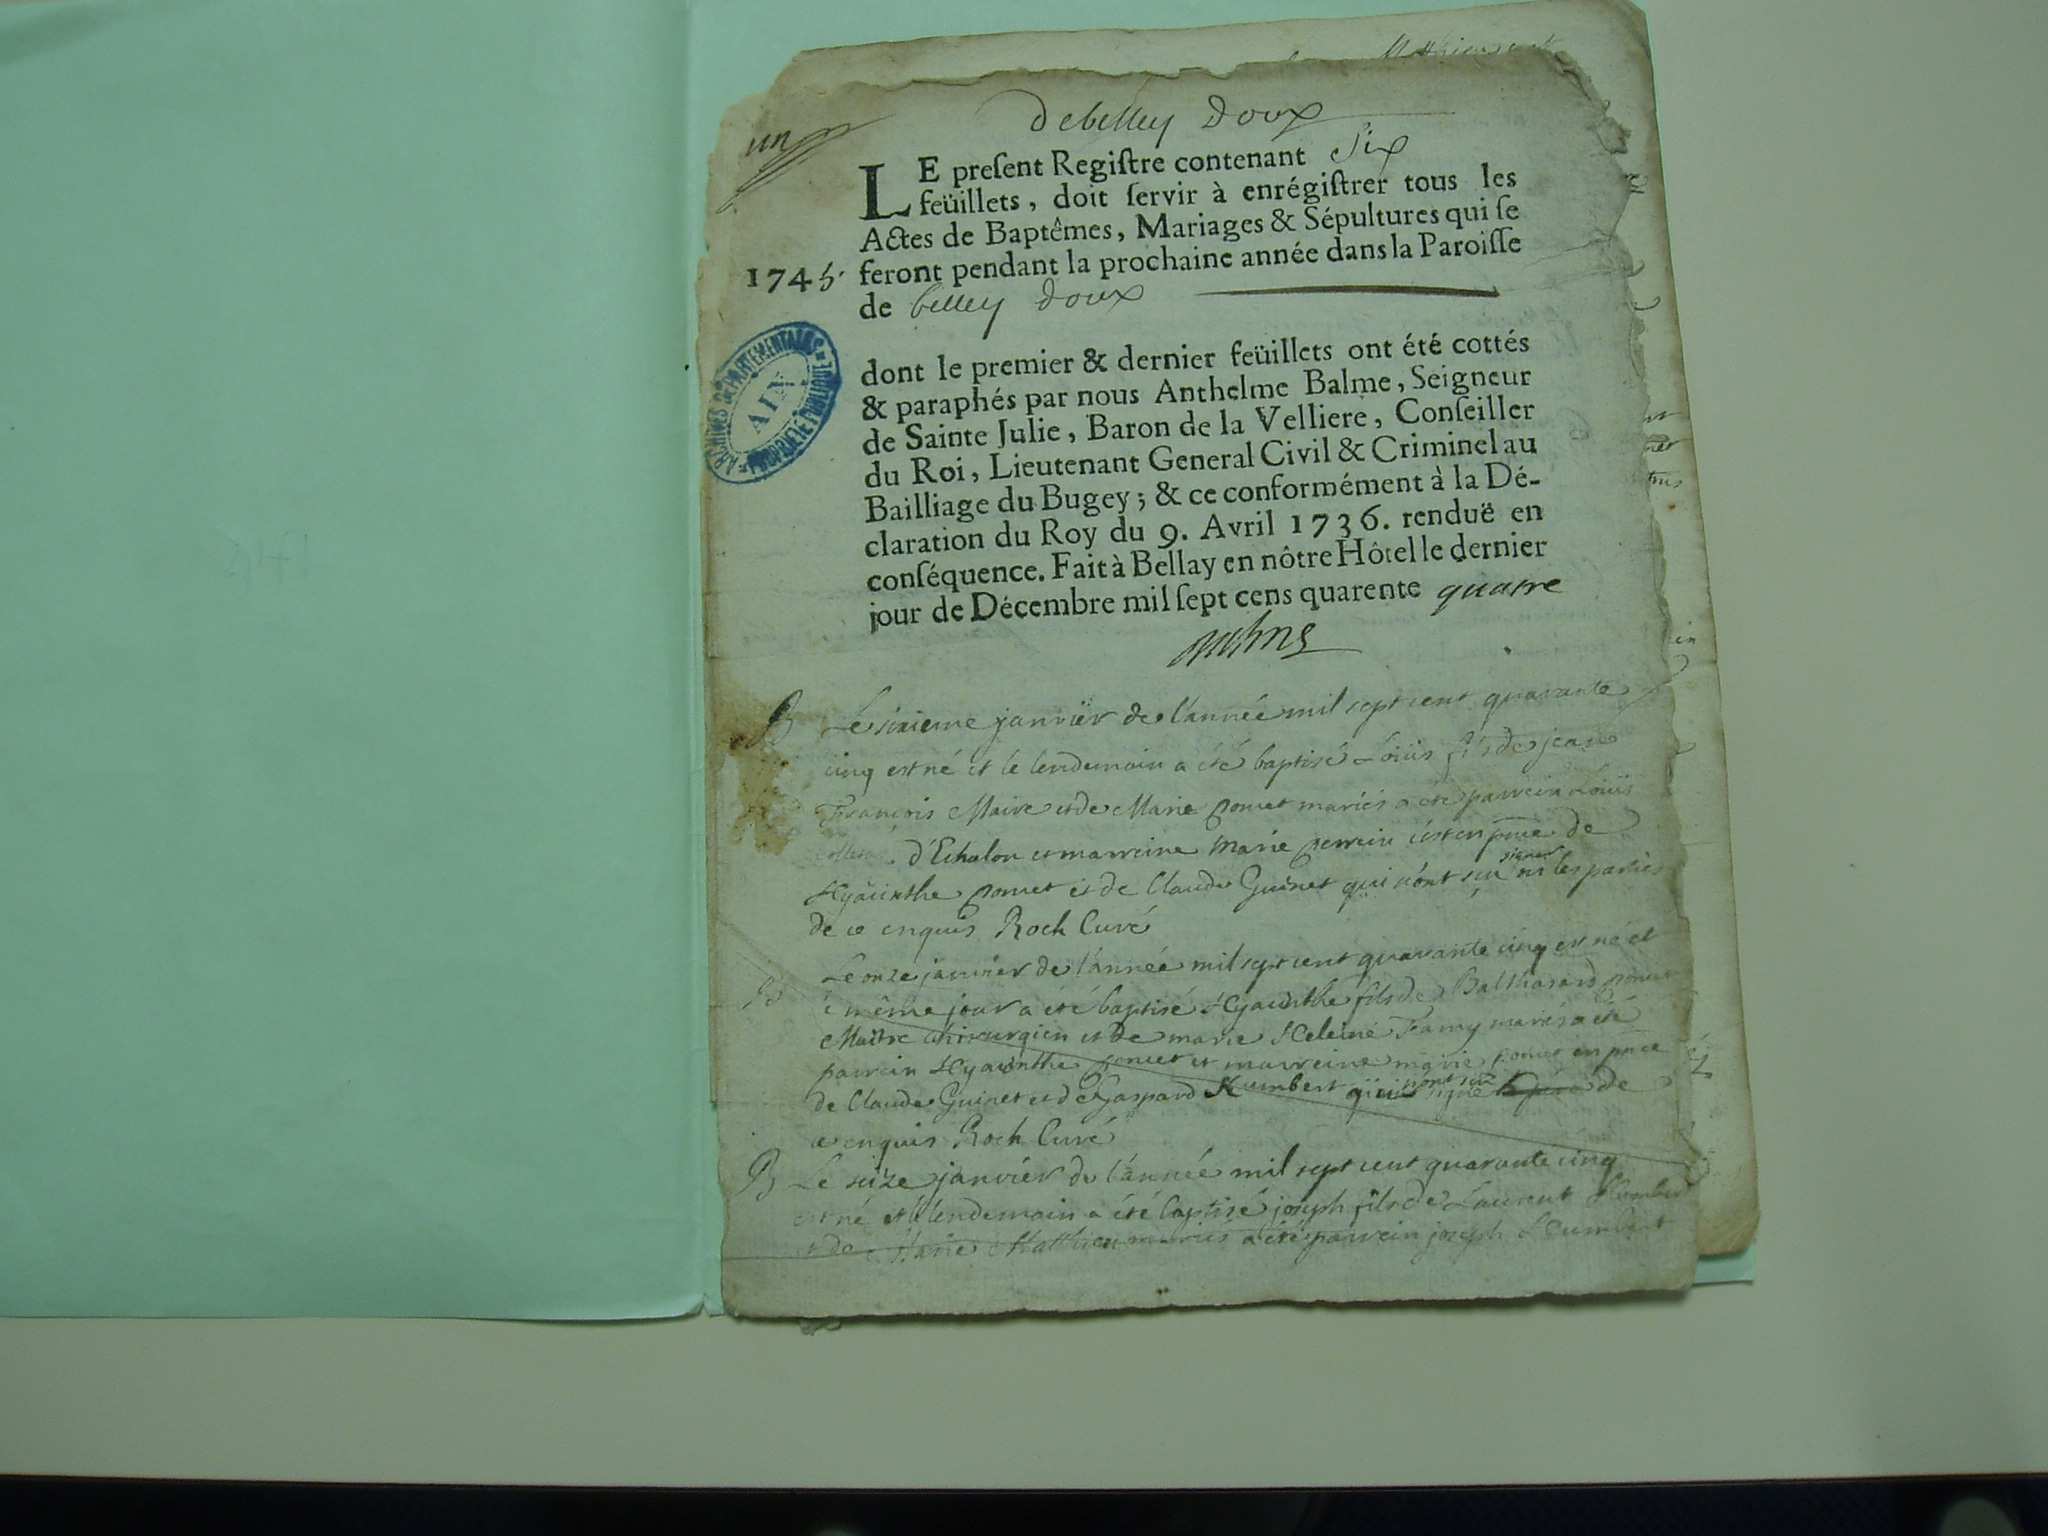 debelley doux
un
LE preſent Regiſtre contenant six
feüillets, doit ſervir à enrégiſtrer tous les
Actes de Baptêmes, Mariages & Sépultures qui ſe
1745. feront pendant la prochaine année dans la Paroiſſe
de belley doux
ARCHIVES DÉPARTEMENTALES
AIN
PROPRIÉTÉ PUBLIQUE
dont le premier & dernier feüillets ont été cottés
& paraphés par nous Anthelme Balme, Seigneur
de Sainte Julie, Baron de la Velliere, Conſeiller
du Roi, Lieutenant General Civil & Criminel au
Bailliage du Bugey; & ce conformément à la Dé-
claration du Roy du 9. Avril 1736. renduë en
conſéquence. Fait à Bellay en nôtre Hôtel le dernier
jour de Décembre mil ſept cens quarente quatre
B Le sixieme janvier de l'année mil sept cent quarante
cinq est né et le lendemain a été baptisé Loüis fils de jean
François Maire et de Marie ponet mariés a été parrein Loüis
d'Echalon et marreine Marie perrein c'est en pnce de
Hyacinthe ponet et de Claude Guinet qui n'ont sçu signer ni les parties
de ce enquis Roch Curé
B Le onze janvier de l'année mil sept cent quarante cinq est né et
le même jour a été baptisé Hyacinthe fils de Balthasard ponet
Maitre chirurgien et de marie Heleine mariés a été
parrein Hyacinthe ponet et marreine marie ponet en pnce
de Claude Guinet et de Gaspard Humbert qui n'ont sçu signé de
ce enquis Roch Curé
B Le seize janvier de l'année mil sept cent quarante cinq
est né et le lendemain a été baptisé joseph fils de Laurent Humbert
et de Marie Mathieu mariés a été parrein joseph Humbert